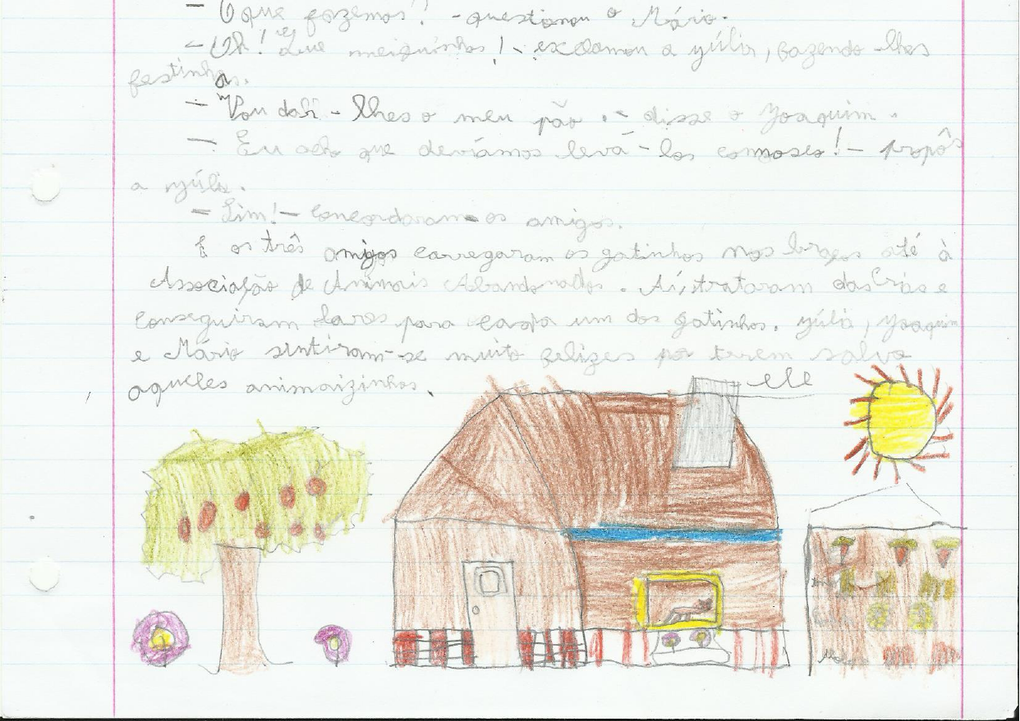 — O que fazemos? - questionou o Mário.
— Oh! Que meiguinhos! - exclamou a Júlia, fazendo-lhes
festinhas.
— Vou dar-lhes o meu pão. - disse o Joaquim.
— Eu acho que devíamos levá-los connosco! - propôs
a Júlia.
— Sim! - Concordaram os amigos.
E os três amigos carregaram os gatinhos nos braços até à
Associação de Animais Abandonados. Aí, trataram das Crias e
conseguiram lares para cada um dos gatinhos. Júlia, Joaquim
e Mário sentiram-se muito felizes por terem salvo
aqueles animaizinhos.